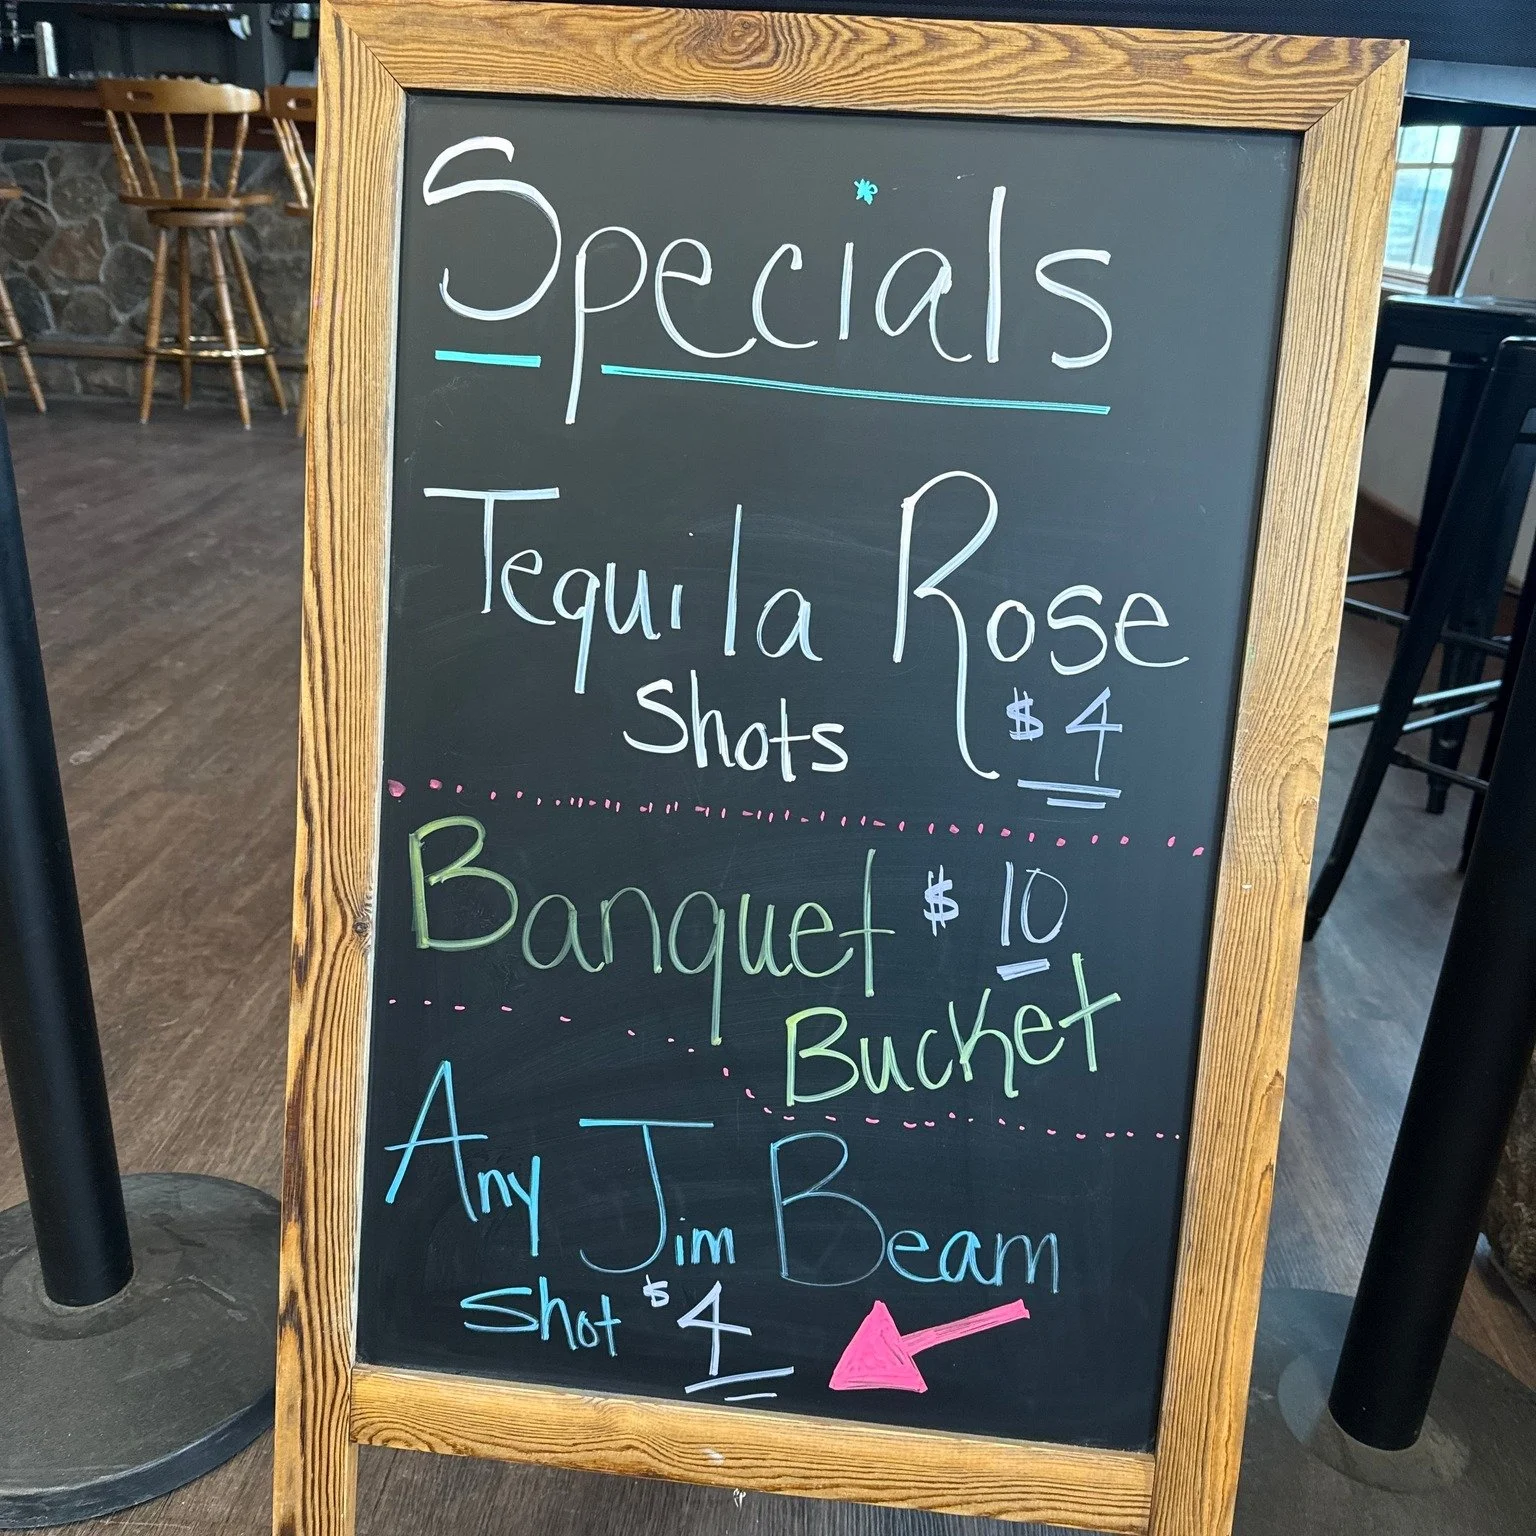 Specials
Tequila Rose
Shots $4
Banquet $10
Bucket
Any Jim Beam
Shot $4